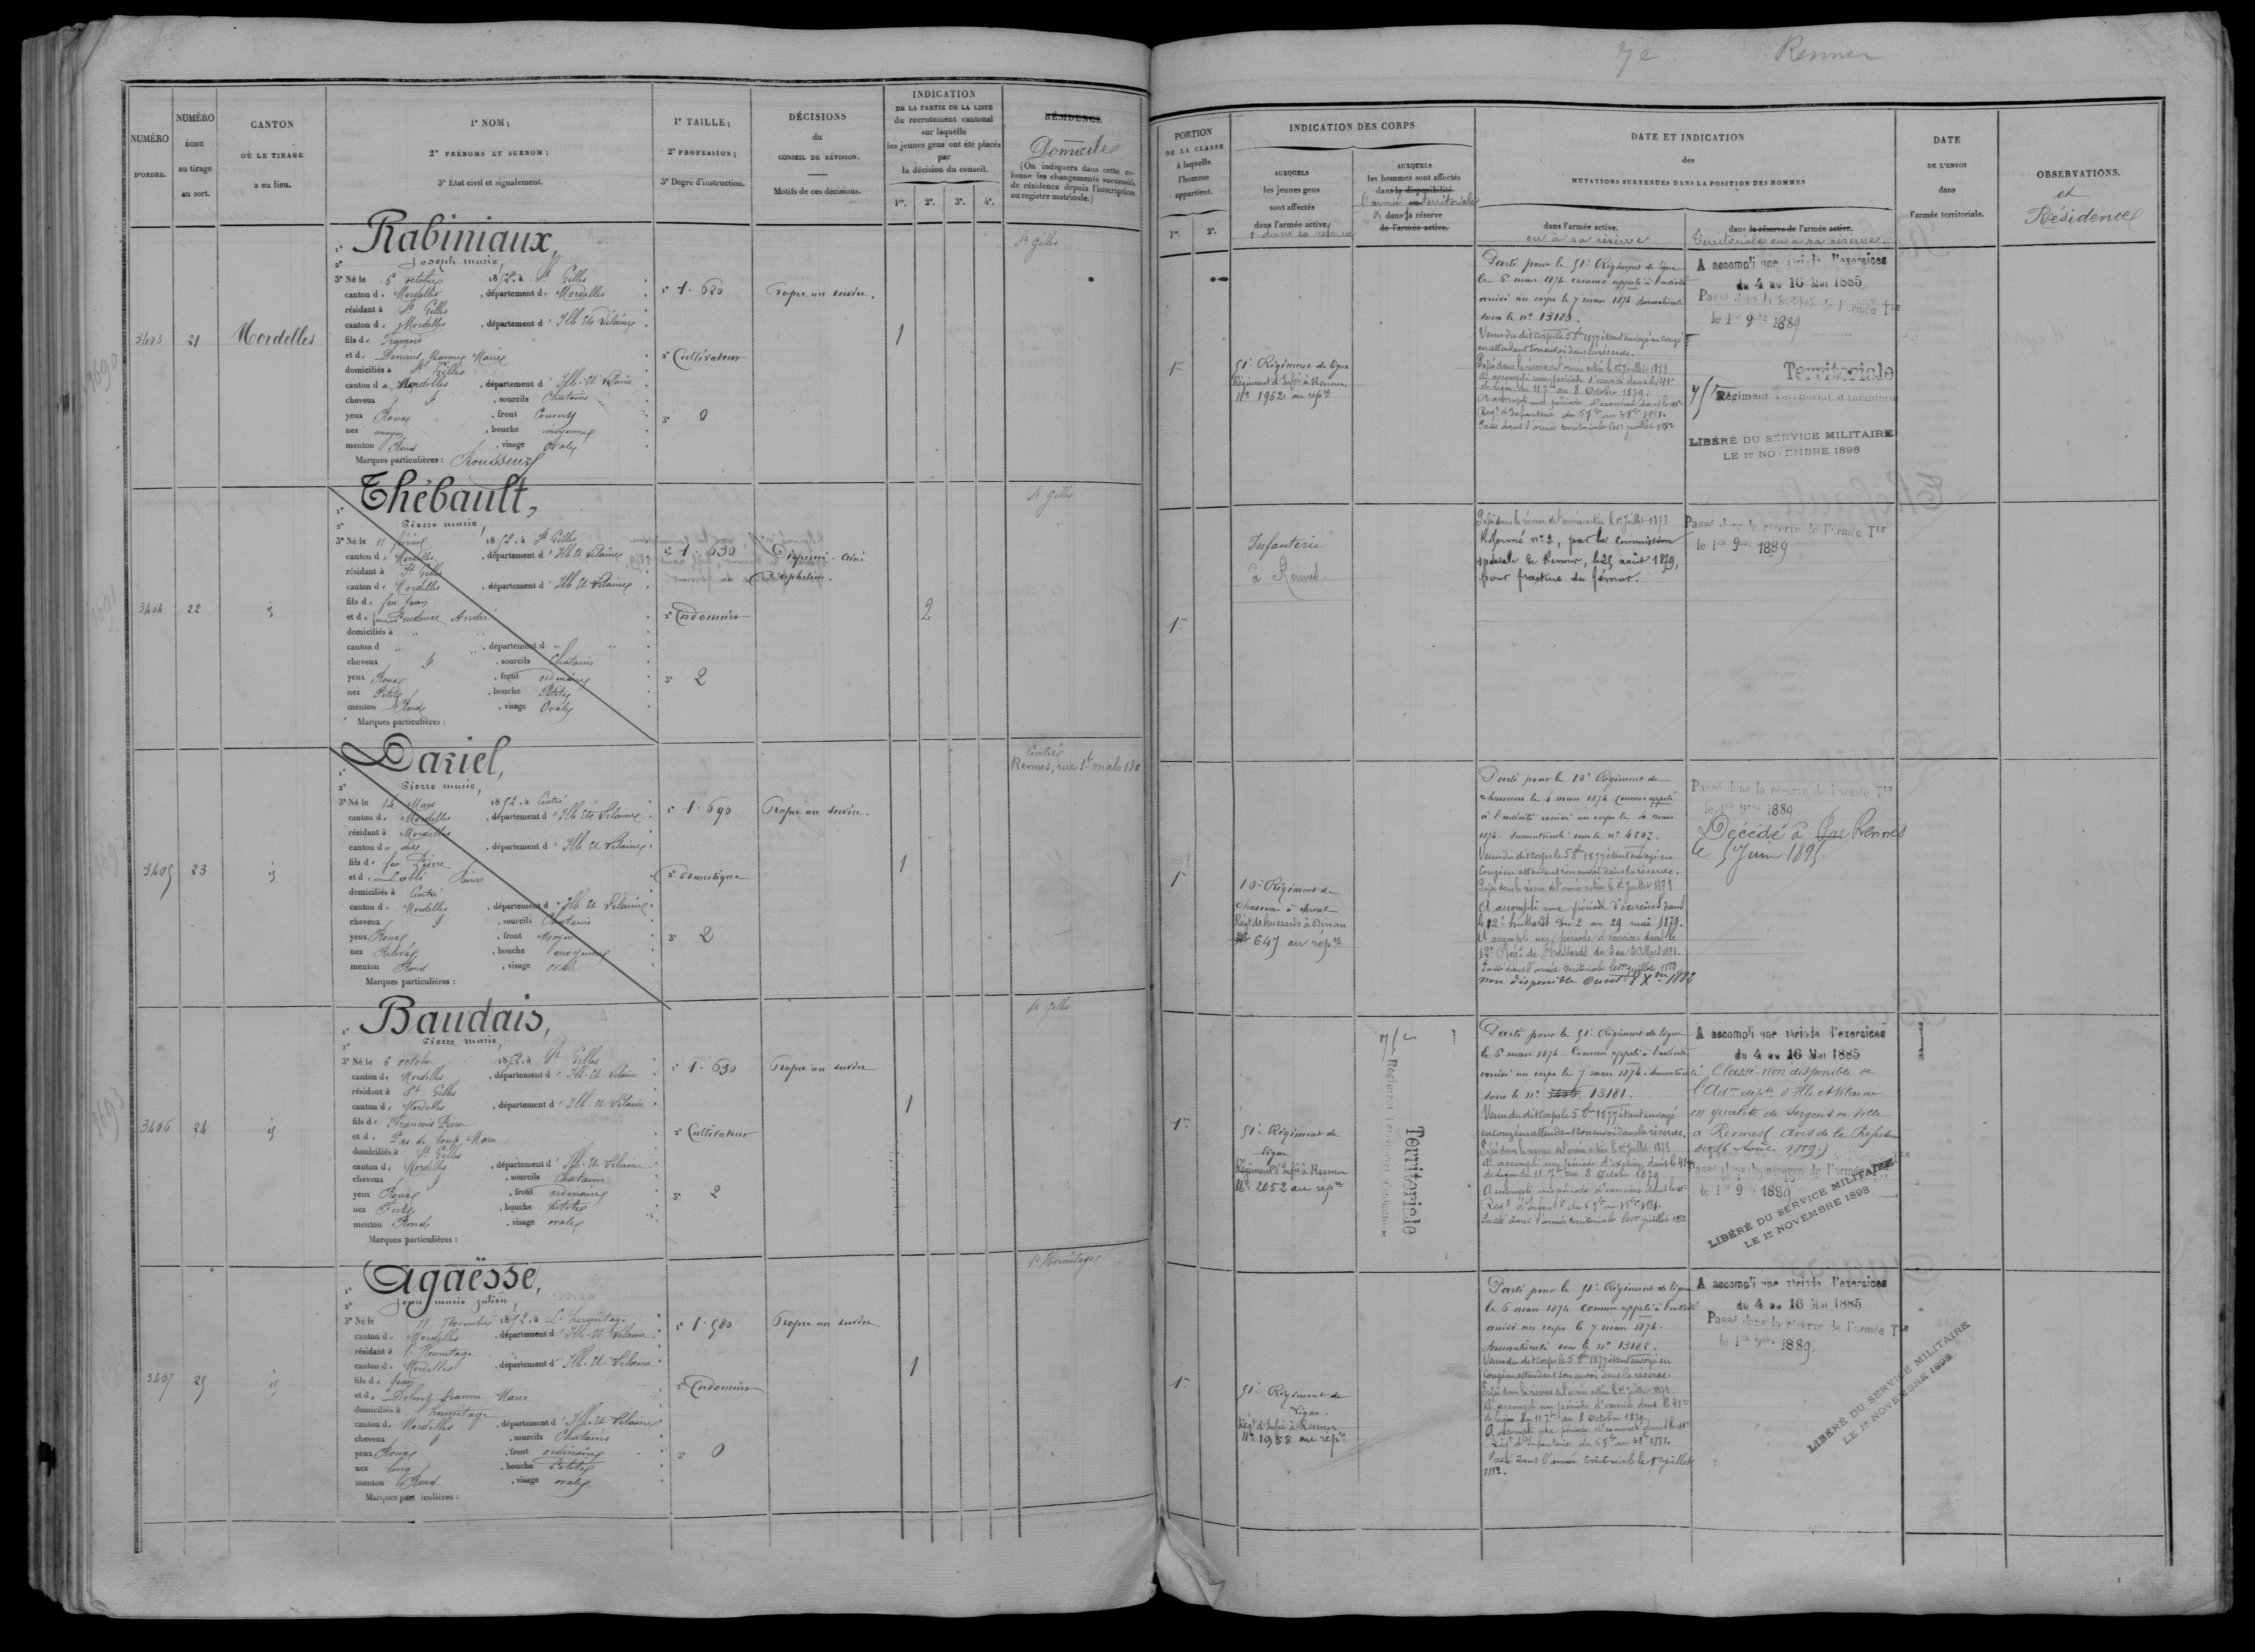 7e Rennes
NUMÉRO D'ORDRE.
NUMÉRO ÉCHU au tirage au sort.
CANTON OÙ LE TIRAGE a eu lieu.
1º NOM;
2º PRÉNOMS ET SURNOM;
3º État civil et signalement.
1º TAILLE;
2º PROFESSION;
3º Degré d'instruction.
DÉCISIONS du CONSEIL DE RÉVISION.
Motifs de ces décisions.
INDICATION
DE LA PARTIE DE LA LISTE
du recrutement cantonal
sur laquelle
les jeunes gens ont été placés
par
la décision du conseil.
1re. 2e. 3e. 4e.
RÉSIDENCE
Domicile
(On indiquera dans cette colonne les changements successifs de résidence depuis l'inscription au registre matricule.)
PORTION
DE LA CLASSE
à laquelle
l'homme
appartient.
1re. 2e.
INDICATION DES CORPS
AUXQUELS
les jeunes gens
sont affectés
dans l'armée active
et dans sa réserve
AUXQUELS
les hommes sont affectés
dans la disponibilité
l'armée territoriale
dans la réserve
de l'armée active.
DATE ET INDICATION
des
MUTATIONS SURVENUES DANS LA POSITION DES HOMMES
dans l'armée active.
ou à sa réserve
dans la réserve de l'armée active.
Territoriale ou à sa réserve.
DATE
DE L'ENVOI
dans
l'armée territoriale.
OBSERVATIONS.
et
Résidence
3403 21 Mordelles
1º Rabiniaux,
2º Joseph marie,
3º Né le 6 octobre 1852, à St Gilles
canton de Mordelles, département de Mordelles
résidant à St Gilles
canton de Mordelles, département d'Ille Et Vilaine
fils de François
et de Jeanne Marie
domiciliés à St Gilles
canton de Mordelles, département d'Ille-Et-Vilaine
cheveux, sourcils Chatains
yeux Roux, front Couvert
nez moyen, bouche moyenne
menton Rond, visage Ovale
Marques particulières : Rousseurs
1º 1.620
2º Cultivateur
3º 0
Propre au service.
1
St Gilles
1re
51e Régiment de ligne
Régiment d'Infie à Rennes
Nº 1962 au repre
Parti pour le 51e Régiment de ligne
le 6 mars 1874 comme appelé à l'activité
arrivé au corps le 7 mars 1874. Immatriculé
sous le nº 13180.
Venu du dit corps le 5 8bre 1877 étant envoyé en congé
en attendant son envoi dans la réserve.
Passé dans la réserve de l'armée active le 1er Juillet 1878
A accompli une période d'exercice dans le 41e
de Ligne du 11 7bre au 8 Octobre 1879.
Passé dans l'armée territoriale le 1er juillet 1882
A accompli une période d'exercices
du 4 au 16 Mai 1885
Passé dans la réserve de l'armée Tle
le 1er 9bre 1889
Territoriale
Régiment Territorial d'Infanterie
LIBÉRÉ DU SERVICE MILITAIRE
LE 1er NOVEMBRE 1898
3404 22 id
1º Thébault,
2º Pierre marie,
3º Né le 11 février 1852, à St Gilles
canton de Mordelles, département d'Ille Et Vilaine
résidant à St Gilles
canton de Mordelles, département d'Ille Et Vilaine
fils de feu Jean
et de feue Prudence André
domiciliés à "
canton d ", département d "
cheveux, sourcils Chatains
yeux Roux, front ordinaire
nez Petit, bouche Petite
menton Rond, visage Ovale
Marques particulières :
1º 1.630
2º Cordonnier
3º 2
Dispensé. Ainé
d'orphelins.
2
St Gilles
1re
Infanterie
à Rennes.
Passé dans la réserve de l'armée active le 1er Juillet 1878
Réformé nº 2, par la Commission
spéciale de Rennes, le 25 août 1879,
pour fracture du fémur.
Passé dans la réserve de l'armée Tle
le 1er 9bre 1889
3405 23 id
1º Daniel,
2º Pierre marie,
3º Né le 14 Mars 1852, à Cintré
canton de Mordelles, département d'Ille Et Vilaine
résidant à Mordelles
canton de dite, département d'Ille Et Vilaine
fils de feu Pierre
et de Labbé Reine
domiciliés à Cintré
canton de Mordelles, département d'Ille Et Vilaine
cheveux, sourcils Chatains
yeux Roux, front Moyen
nez, bouche moyenne
menton Rond, visage ovale
Marques particulières :
1º 1.690
2º domestique
3º 2
Propre au service.
1
Cintré
Rennes, rue St malo 130
1re
10e Régiment de
chasseurs à cheval
Régt de hussards à Dinan
Nº 647 au repre
Parti pour le 10e Régiment de
chasseurs le 4 mars 1874 comme appelé
à l'activité arrivé au corps le mars
1874. Immatriculé sous le nº 4202.
Venu du dit corps le 5 8bre 1877 étant envoyé en
congé en attendant son envoi dans la réserve.
Passé dans la réserve de l'armée active le 1er Juillet 1878
A accompli une période d'exercices dans
le 12e hussards du 2 au 29 mai 1879.
A accompli une période d'exercice dans le
12e Régt de Hussards du 3 au 30 Mars 1881.
Passé dans l'armée territoriale le 1er juillet 1883
non disponible Ouest 8 Xbre 1882
Passé dans la réserve de l'armée Tle
le 1er 9bre 1889
Décédé à Rennes
le 5 Juin 1895.
3406 24 id
1º Baudais,
2º Pierre marie,
3º Né le 6 octobre 1852, à St Gilles
canton de Mordelles, département d'Ille-Et-Vilaine
résidant à St Gilles
canton de Mordelles, département d'Ille-Et-Vilaine
fils de François Pierre
et de Pas de Loup Marie
domiciliés à St Gilles
canton de Mordelles, département d'Ille-Et-Vilaine
cheveux, sourcils Chatains
yeux Roux, front ordinaire
nez Fort, bouche petite
menton Rond, visage ovale
Marques particulières :
1º 1.630
2º Cultivateur
3º 2
Propre au service
1
St Gilles
1re
51e Régiment de
ligne
Régiment d'Infie à Rennes
Nº 2052 au repre
Régiment Territorial d'Infanterie
Territoriale
Parti pour le 51e Régiment de ligne
le 6 mars 1874. Comme appelé à l'activité
arrivé au corps le 7 mars 1874. Immatriculé
sous le nº 13181.
Venu du dit corps le 5 8bre 1877 étant envoyé
en congé en attendant son envoi dans la réserve.
Passé dans la réserve de l'armée active le 1er Juillet 1878
A accompli une période d'exercice dans le 41e
de Ligne du 11 7bre au 8 Octobre 1879
Passé dans l'armée territoriale le 1er juillet 1882
A accompli une période d'exercices
du 4 au 16 Mai 1885
Classé non disponible de
l'Adon dépale d'Ille et Vilaine
en qualité de Sergent de Ville
à Rennes (avis de la Préfecture
du 16 Août 1889)
Passé dans la réserve de l'armée Tle
le 1er 9bre 1889
LIBÉRÉ DU SERVICE MILITAIRE
LE 1er NOVEMBRE 1898
3407 25 id
1º Agaësse,
2º Jean marie julien,
3º Né le 11 Novembre 1852, à L'hermitage
canton de Mordelles, département d'Ille-Et-Vilaine
résidant à l'Hermitage
canton de Mordelles, département d'Ille-Et-Vilaine
fils de Jean
et de Jeanne Marie
domiciliés à l'hermitage
canton de Mordelles, département d'Ille-Et-Vilaine
cheveux, sourcils Chatains
yeux Roux, front ordinaire
nez long, bouche Petite
menton Rond, visage ovale
Marques particulières :
1º 1.580
2º Cordonnier
3º 0
Propre au service.
1
l'Hermitage
1re
51e Régiment de
Ligne.
Régt d'Infie à Rennes
Nº 1958 au repre
Parti pour le 51e Régiment de ligne
le 6 mars 1874 comme appelé à l'activité
arrivé au corps le 7 mars 1874.
Immatriculé sous le nº 13182.
Venu du dit corps le 5 8bre 1877 étant envoyé en
congé en attendant son envoi dans la réserve.
Passé dans la réserve de l'armée active le 1er Juillet 1878
A accompli une période d'exercice dans le 41e
de Ligne du 11 7bre au 8 Octobre 1879.
Passé dans l'armée territoriale le 1er juillet
1882.
A accompli une période d'exercices
du 4 au 16 Mai 1885
Passé dans la réserve de l'armée Tle
le 1er 9bre 1889.
LIBÉRÉ DU SERVICE MILITAIRE
LE 1er NOVEMBRE 1898